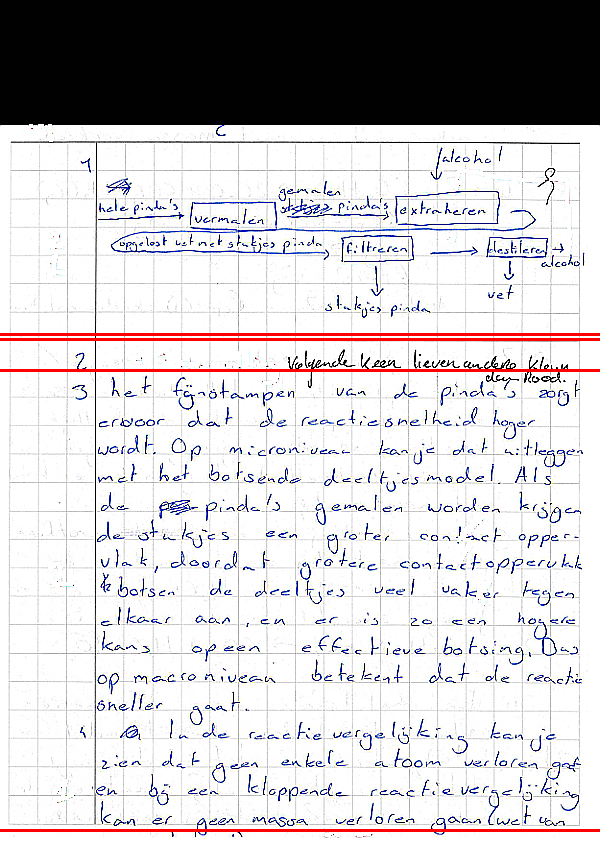 C
1
alcohol
gemalen
hele pinda's vermalen pinda's extraheren
opgelost vet met stukjes pinda filtreren destileren
alcohol
vet
stukjes pinda
2 Volgende keer liever andere kleur
dan Rood.
3 het fijnstampen van de pinda's zorgt
ervoor dat de reactiesnelheid hoger
wordt. Op microniveau kan je dat uitleggen
met het botsende deeltjesmodel. Als
de pinda's gemalen worden krijgen
de stukjes een groter contact opper-
vlak, doordat grotere contactoppervlak
botsen de deeltjes veel vaker tegen
elkaar aan, en er is zo een hogere
kans op een effectieve botsing. Dus
op macroniveau betekent dat de reactie
sneller gaat.
4 In de reactievergelijking kan je
zien dat geen enkele atoom verloren gaat
en bij een kloppende reactievergelijking
kan er geen massa verloren gaan (wet van